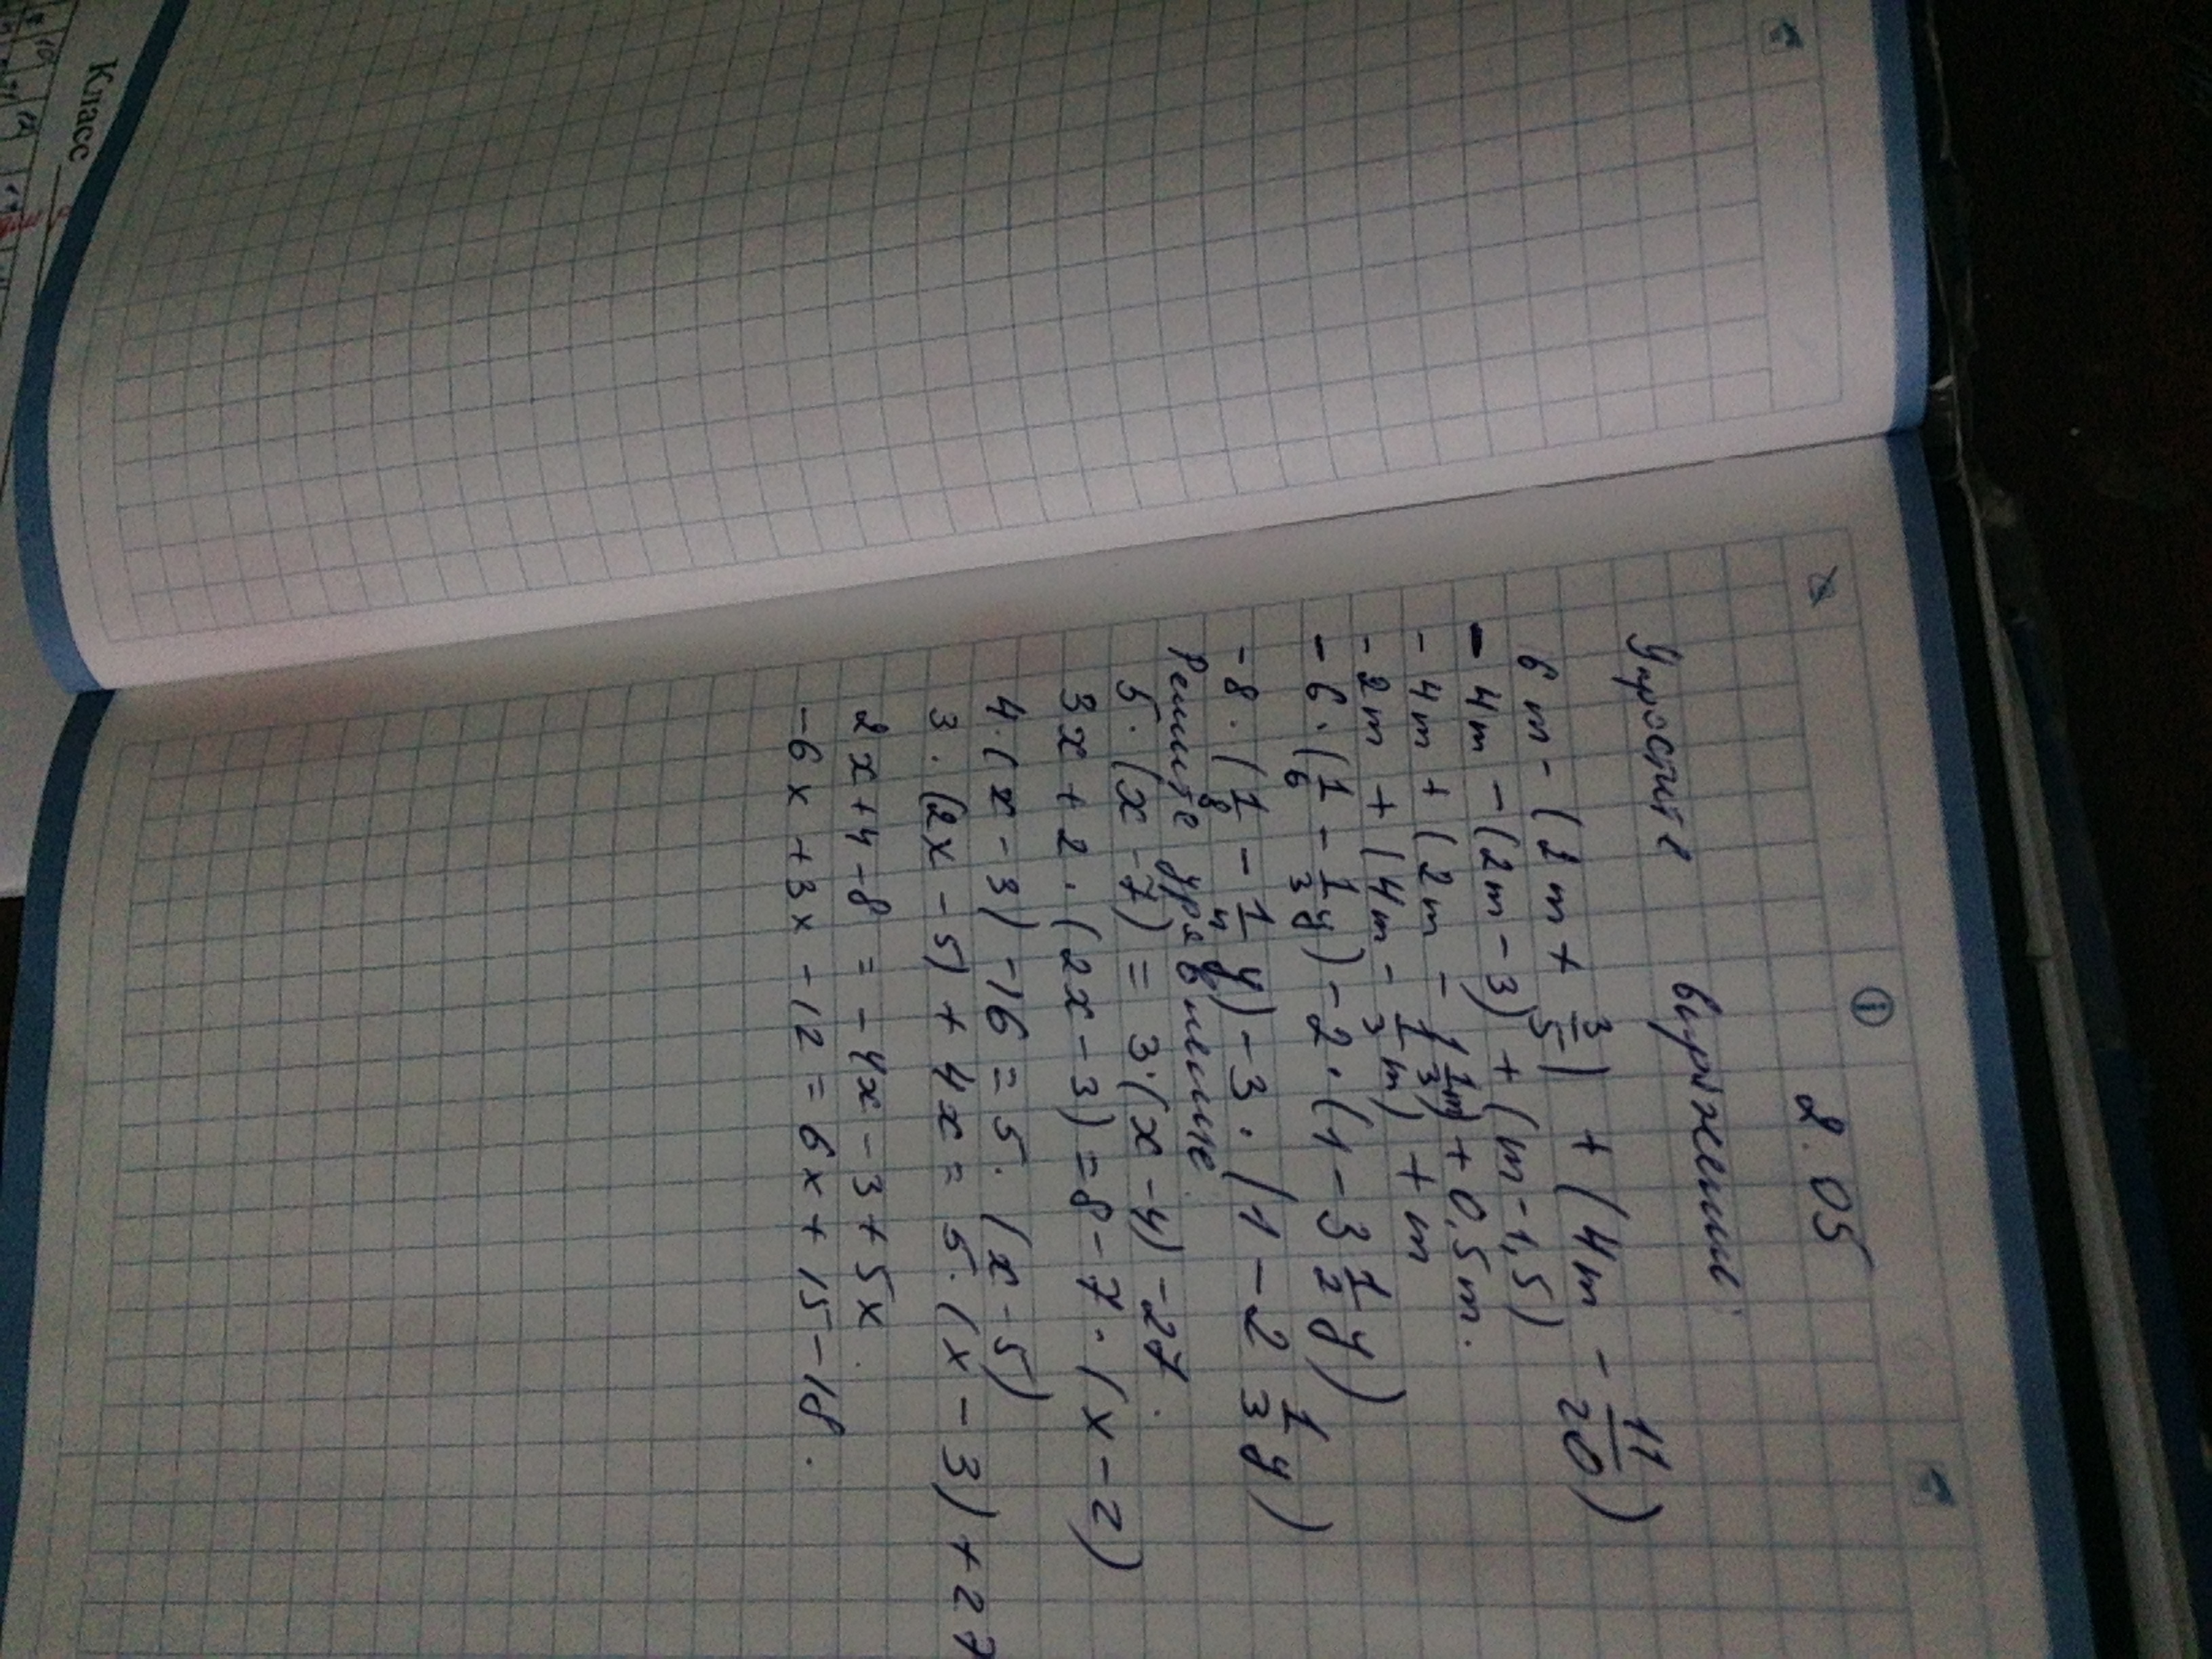 2.05
Упростите выражение:
6m - (2m + 3/5) + (4m - 11/20)
- 4m - (2m - 3) + (m - 1,5)
- 4m + (2m - 1 1/3 m) + 0,5m.
- 2m + (4m - 1/3 m) + m
- 6 · (1/6 - 1/3 y) - 2 · (1 - 3 1/2 y)
- 8 · (1/8 - 1/4 y) - 3 · (1 - 2 1/3 y)
Решите уравнение.
5 · (x - 7) = 3 · (x - 4) - 27.
3x + 2 · (2x - 3) = 8 - 7 · (x - 2)
4 · (x - 3) - 16 = 5 · (x - 5)
3 · (2x - 5) + 4x = 5 · (x - 3) + 27
2x + 4 - 8 = - 4x - 3 + 5x.
- 6x + 3x - 12 = 6x + 15 - 18.
Класс